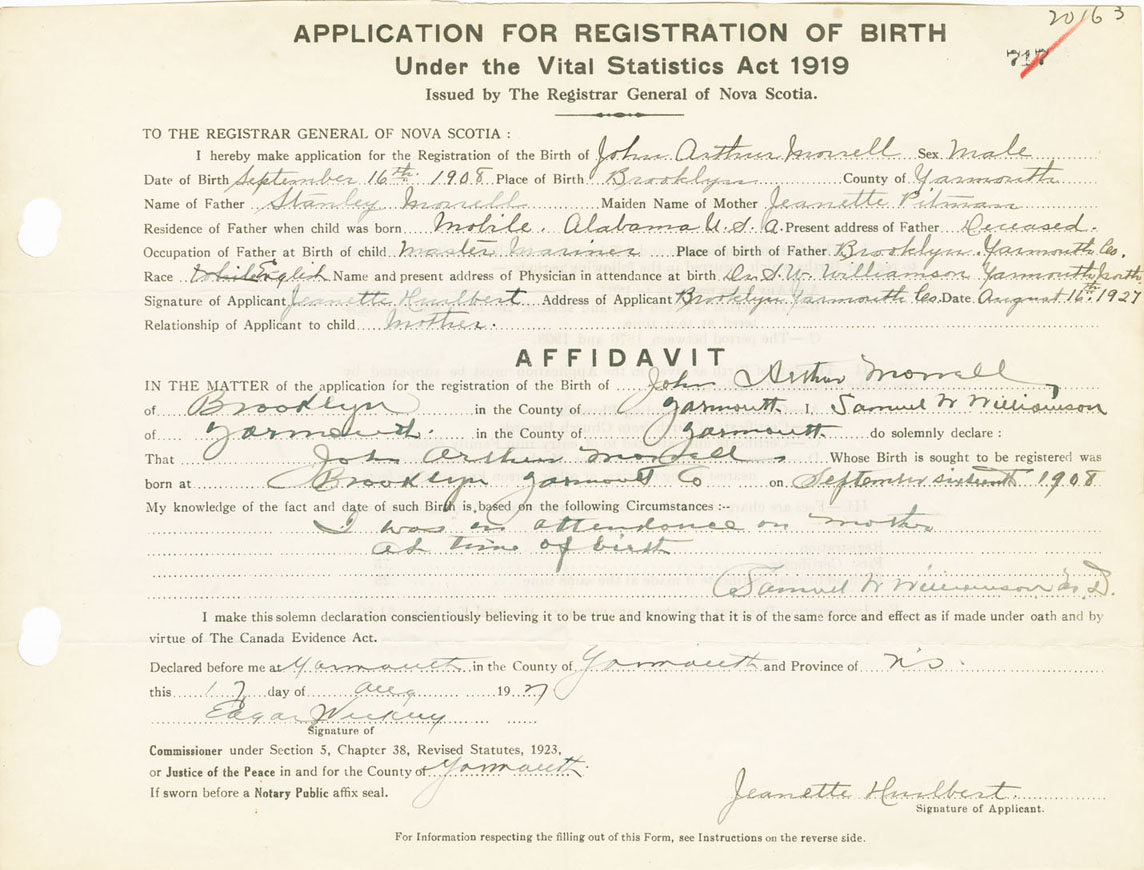 20163
717
APPLICATION FOR REGISTRATION OF BIRTH
Under the Vital Statistics Act 1919
Issued by The Registrar General of Nova Scotia.
TO THE REGISTRAR GENERAL OF NOVA SCOTIA :
I hereby make application for the Registration of the Birth of John Arthur Morrell Sex Male
Date of Birth September 16th 1908 Place of Birth Brooklyn County of Yarmouth
Name of Father Stanley Morrell Maiden Name of Mother Jeanette Pitman
Residence of Father when child was born Mobile. Alabama U.S.A. Present address of Father Deceased.
Occupation of Father at Birth of child Master Mariner Place of birth of Father Brooklyn. Yarmouth Co.
Race White English Name and present address of Physician in attendance at birth Dr. S. W. Williamson Yarmouth North
Signature of Applicant Jeanette Hurlbert Address of Applicant Brooklyn Yarmouth Co. Date August 16th. 1927
Relationship of Applicant to child Mother.
AFFIDAVIT
IN THE MATTER of the application for the registration of the Birth of John Arthur Morrell
of Brooklyn in the County of Yarmouth I, Samuel W Williamson
of Yarmouth. in the County of Yarmouth do solemnly declare :
That John Arthur Morrell Whose Birth is sought to be registered was
born at Brooklyn Yarmouth Co on September sixteenth 1908
My knowledge of the fact and date of such Birth is based on the following Circumstances :--
I was in attendance on mother
at time of birth
Samuel W Williamson M.D.
I make this solemn declaration conscientiously believing it to be true and knowing that it is of the same force and effect as if made under oath and by
virtue of The Canada Evidence Act.
Declared before me at Yarmouth in the County of Yarmouth and Province of N.S.
this 17 day of Aug 1927
Edgar
Signature of
Commissioner under Section 5, Chapter 38, Revised Statutes, 1923,
or Justice of the Peace in and for the County of Yarmouth.
If sworn before a Notary Public affix seal.
Jeanette Hurlbert.
Signature of Applicant.
For Information respecting the filling out of this Form, see Instructions on the reverse side.